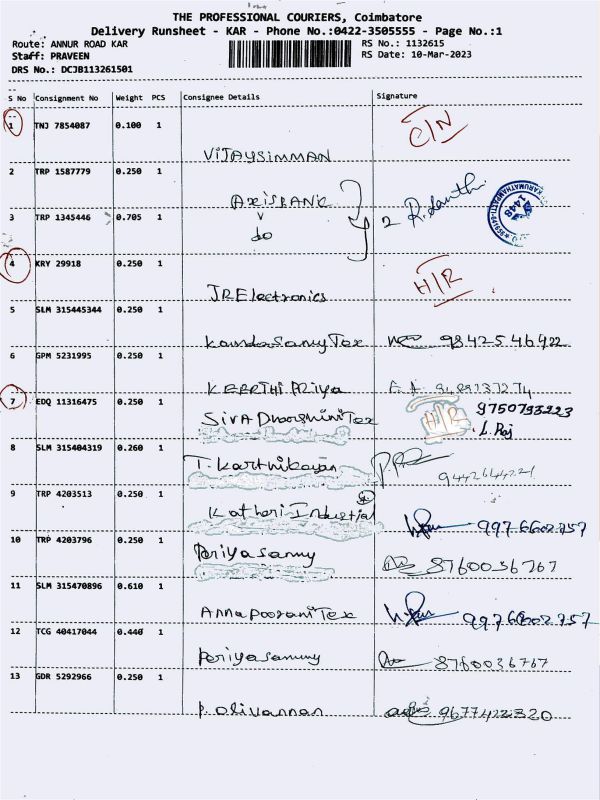 THE PROFESSIONAL COURIERS, Coimbatore
Delivery Runsheet - KAR - Phone No.:0422-3505555 - Page No.:1
Route: ANNUR ROAD KAR RS No.: 1132615
Staff: PRAVEEN RS Date: 10-Mar-2023
DRS No.: DCJB113261501
S No Consignment No Weight PCS Consignee Details Signature
1 TNJ 7854087 0.100 1 C/N
VIJAYSIMMAN
2 TRP 1587779 0.250 1
AXISBANK 2
3 TRP 1345446 0.705 1
do
4 KRY 29918 0.250 1 H/R
JR Electronics
5 SLM 315445344 0.250 1
KandasamyTex 98425 46922
6 GPM 5231995 0.250 1
KEERTHI Priya
7 EDQ 11316475 0.250 1 H/R 9750793223
SIVA DharshiniTex L. Raj
8 SLM 315404319 0.260 1
T. Karthikayan
9 TRP 4203513 0.250 1
Kothari Industrial 9976602757
10 TRP 4203796 0.250 1
Periyasamy 8760036767
11 SLM 315470896 0.610 1
AnnapooraniTex 9976602757
12 TCG 40417044 0.440 1
Periyasamy 8760036767
13 GDR 5292966 0.250 1
P. Olivannan 9677422320